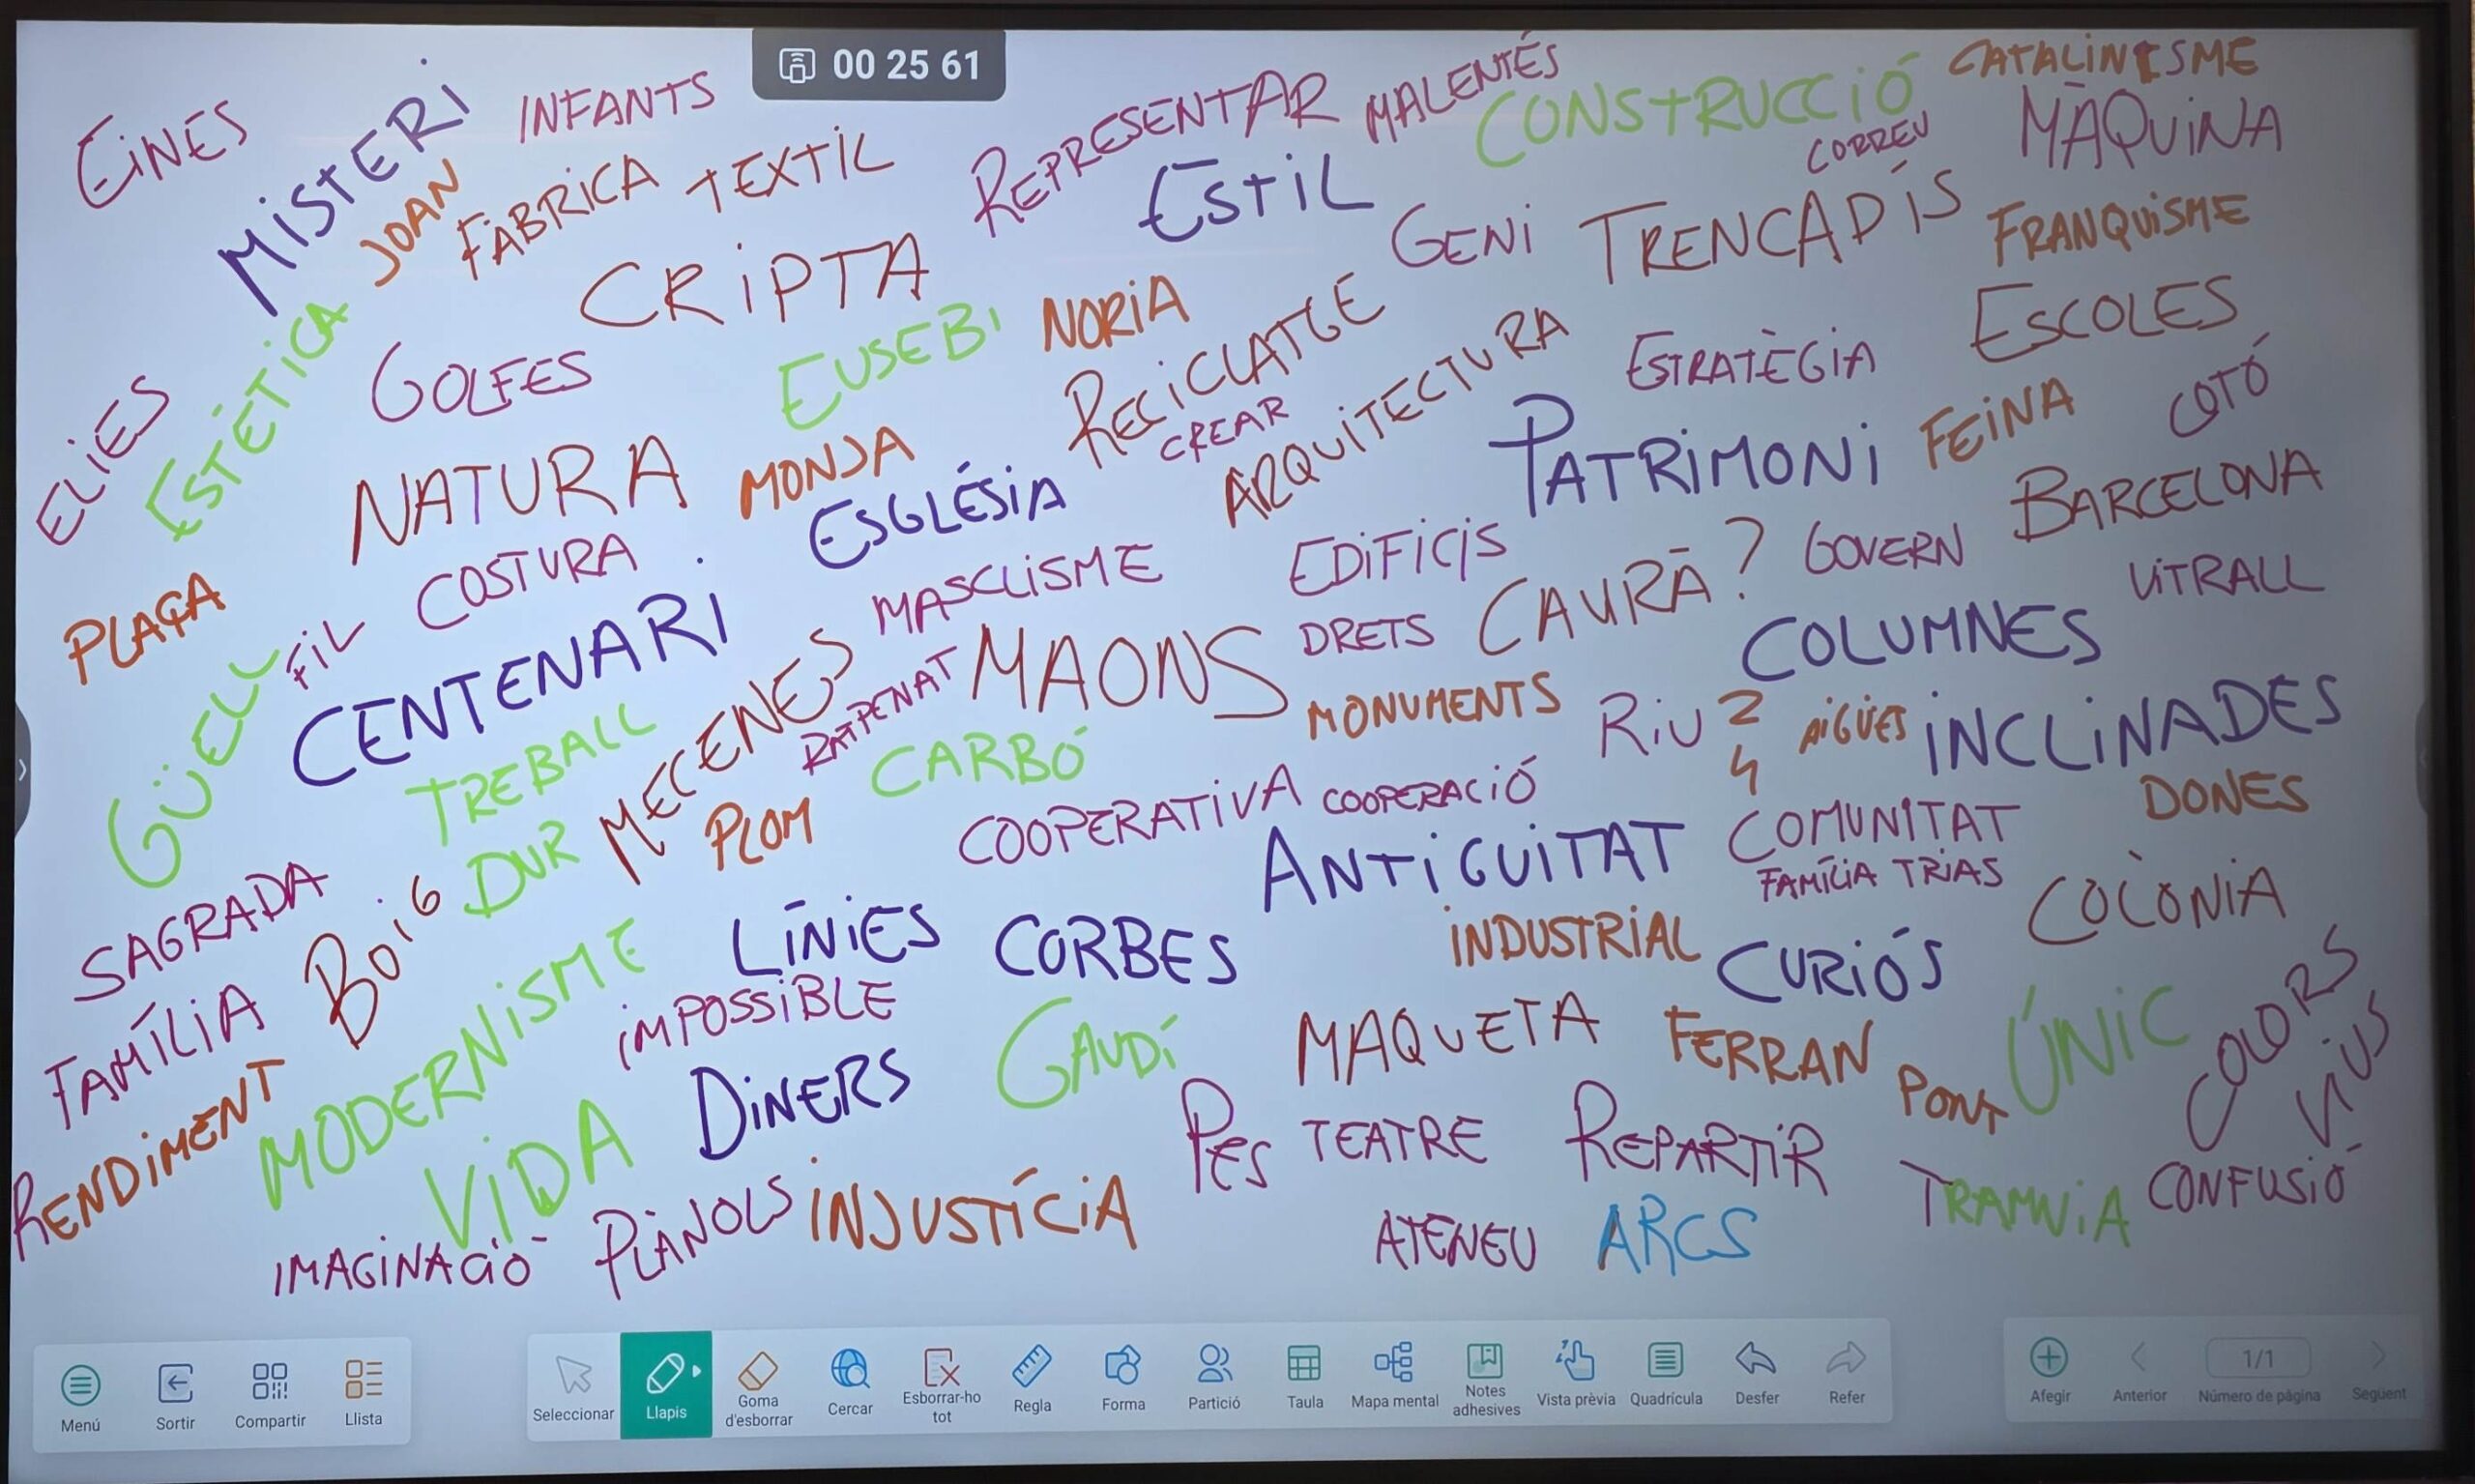 00 25 61
EINES
MISTERI
INFANTS
JOAN
FÀBRICA TEXTIL
REPRESENTAR
MALENTÉS
CONSTRUCCIÓ
CATALINISME
CORREU
MÀQUINA
ESTIL
GENI
TRENCADÍS
FRANQUISME
CRIPTA
ESTÈTICA
GOLFES
EUSEBI
NORIA
RECICLATGE
CREAR
ARQUITECTURA
ESTRATÈGIA
ESCOLES
ELIES
NATURA
MONJA
ESGLÉSIA
PATRIMONI
FEINA
COTÓ
BARCELONA
PLAÇA
COSTURA
FIL
MASCLISME
EDIFICIS
CAURÀ?
GOVERN
VITRALL
GÜELL
CENTENARI
MECENES
RATPENAT
MAONS
DRETS
COLUMNES
INCLINADES
MONUMENTS
RIU
2
4
AIGÜES
TREBALL
DUR
PLOM
CARBÓ
COOPERATIVA
COOPERACIÓ
DONES
ANTIGUITAT
COMUNITAT
FAMÍLIA TRIAS
COLÒNIA
SAGRADA
FAMÍLIA
BOIG
LÍNIES CORBES
INDUSTRIAL
CURIÓS
MODERNISME
IMPOSSIBLE
GAUDÍ
MAQUETA
FERRAN
PONT
ÚNIC
COLORS
VIUS
RENDIMENT
VIDA
DINERS
PES
TEATRE
REPARTIR
TRAMVIA
CONFUSIÓ
IMAGINACIÓ
PLÀNOLS
INJUSTÍCIA
ATENEU
ARCS
Menú
Sortir
Compartir
Llista
Seleccionar
Llapis
Goma
d'esborrar
Cercar
Esborrar-ho
tot
Regla
Forma
Partició
Taula
Mapa mental
Notes
adhesives
Vista prèvia
Quadrícula
Desfer
Refer
Afegir
Anterior
1/1
Número de pàgina
Següent